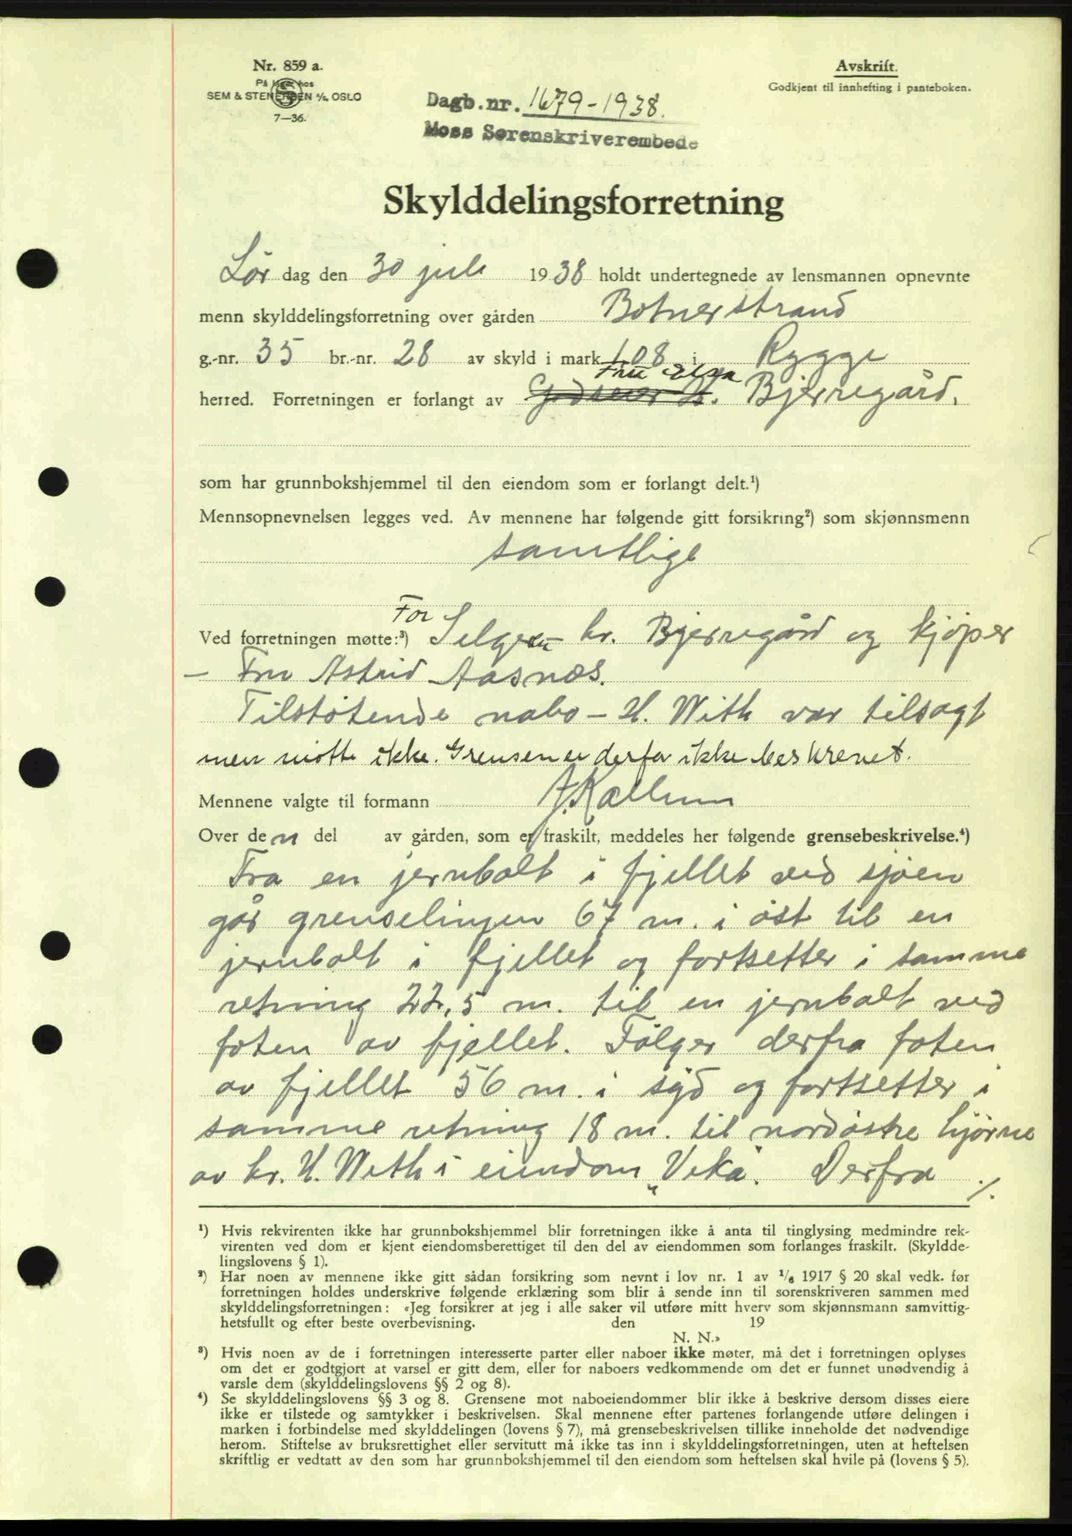 Nr. 859 a.
På lager hos
SEM & STENERSEN A/S, OSLO
7—36.
Avskrift.
Godkjent til innhefting i panteboken.
Dagb.nr. 1679-1938.
Moss Sorenskriverembede
Skylddelingsforretning
Lør dag den 30 juli 1938 holdt undertegnede av lensmannen opnevnte
menn skylddelingsforretning over gården Botnerstrand
g.-nr. 35 br.-nr. 28 av skyld i mark 1,08 i Rygge
Fru
herred. Forretningen er forlangt av Godseier Bjerregård.
som har grunnbokshjemmel til den eiendom som er forlangt delt.¹)
Mennsopnevnelsen legges ved. Av mennene har følgende gitt forsikring²) som skjønnsmenn
samtlige
For
Ved forretningen møtte:³) Selgeren hr. Bjerregård og kjøper
— Fru Astrid Aasnæs.
Tilstøtende nabo — H. With var tilsagt
men møtte ikke. Grensen er derfor ikke beskrevet.
Mennene valgte til formann J. Kallum
Over den del av gården, som er fraskilt, meddeles her følgende grensebeskrivelse.⁴)
Fra en jernbolt i fjellet ved sjøen
går grenselinjen 67 m. i øst til en
jernbolt i fjellet og fortsetter i samme
retning 22,5 m. til en jernbolt ved
foten av fjellet. Følger derfra foten
av fjellet 56 m. i syd og fortsetter i
samme retning 18 m. til nordøstre hjørne
av hr. H. With's eiendom „Vika". Derfra ./.
¹) Hvis rekvirenten ikke har grunnbokshjemmel blir forretningen ikke å anta til tinglysing medmindre rek-
virenten ved dom er kjent eiendomsberettiget til den del av eiendommen som forlanges fraskilt. (Skyldde-
lingslovens § 1).
²) Har noen av mennene ikke gitt sådan forsikring som nevnt i lov nr. 1 av ¹/₆ 1917 § 20 skal vedk. før
forretningen holdes underskrive følgende erklæring som blir å sende inn til sorenskriveren sammen med
skylddelingsforretningen: «Jeg forsikrer at jeg i alle saker vil utføre mitt hverv som skjønnsmann samvittig-
hetsfullt og efter beste overbevisning. den 19
N. N.»
³) Hvis noen av de i forretningen interesserte parter eller naboer ikke møter, må det i forretningen oplyses
om det er godtgjort at varsel er gitt dem, eller for naboers vedkommende om det er funnet unødvendig å
varsle dem (skylddelingslovens §§ 2 og 8).
⁴) Se skylddelingslovens §§ 3 og 8. Grensene mot naboeiendommer blir ikke å beskrive dersom disses eiere
ikke er tilstede og samtykker i beskrivelsen. Skal mennene efter partenes forlangende utføre delingen i
marken i forbindelse med skylddelingen (lovens § 7), må grensebeskrivelsen tillike inneholde det nødvendige
herom. Stiftelse av bruksrettighet eller servitutt må ikke tas inn i skylddelingsforretningen, uten at heftelsen
skriftlig er vedtatt av den som har grunnbokshjemmel til den eiendom som heftelsen skal hvile på (lovens § 5).